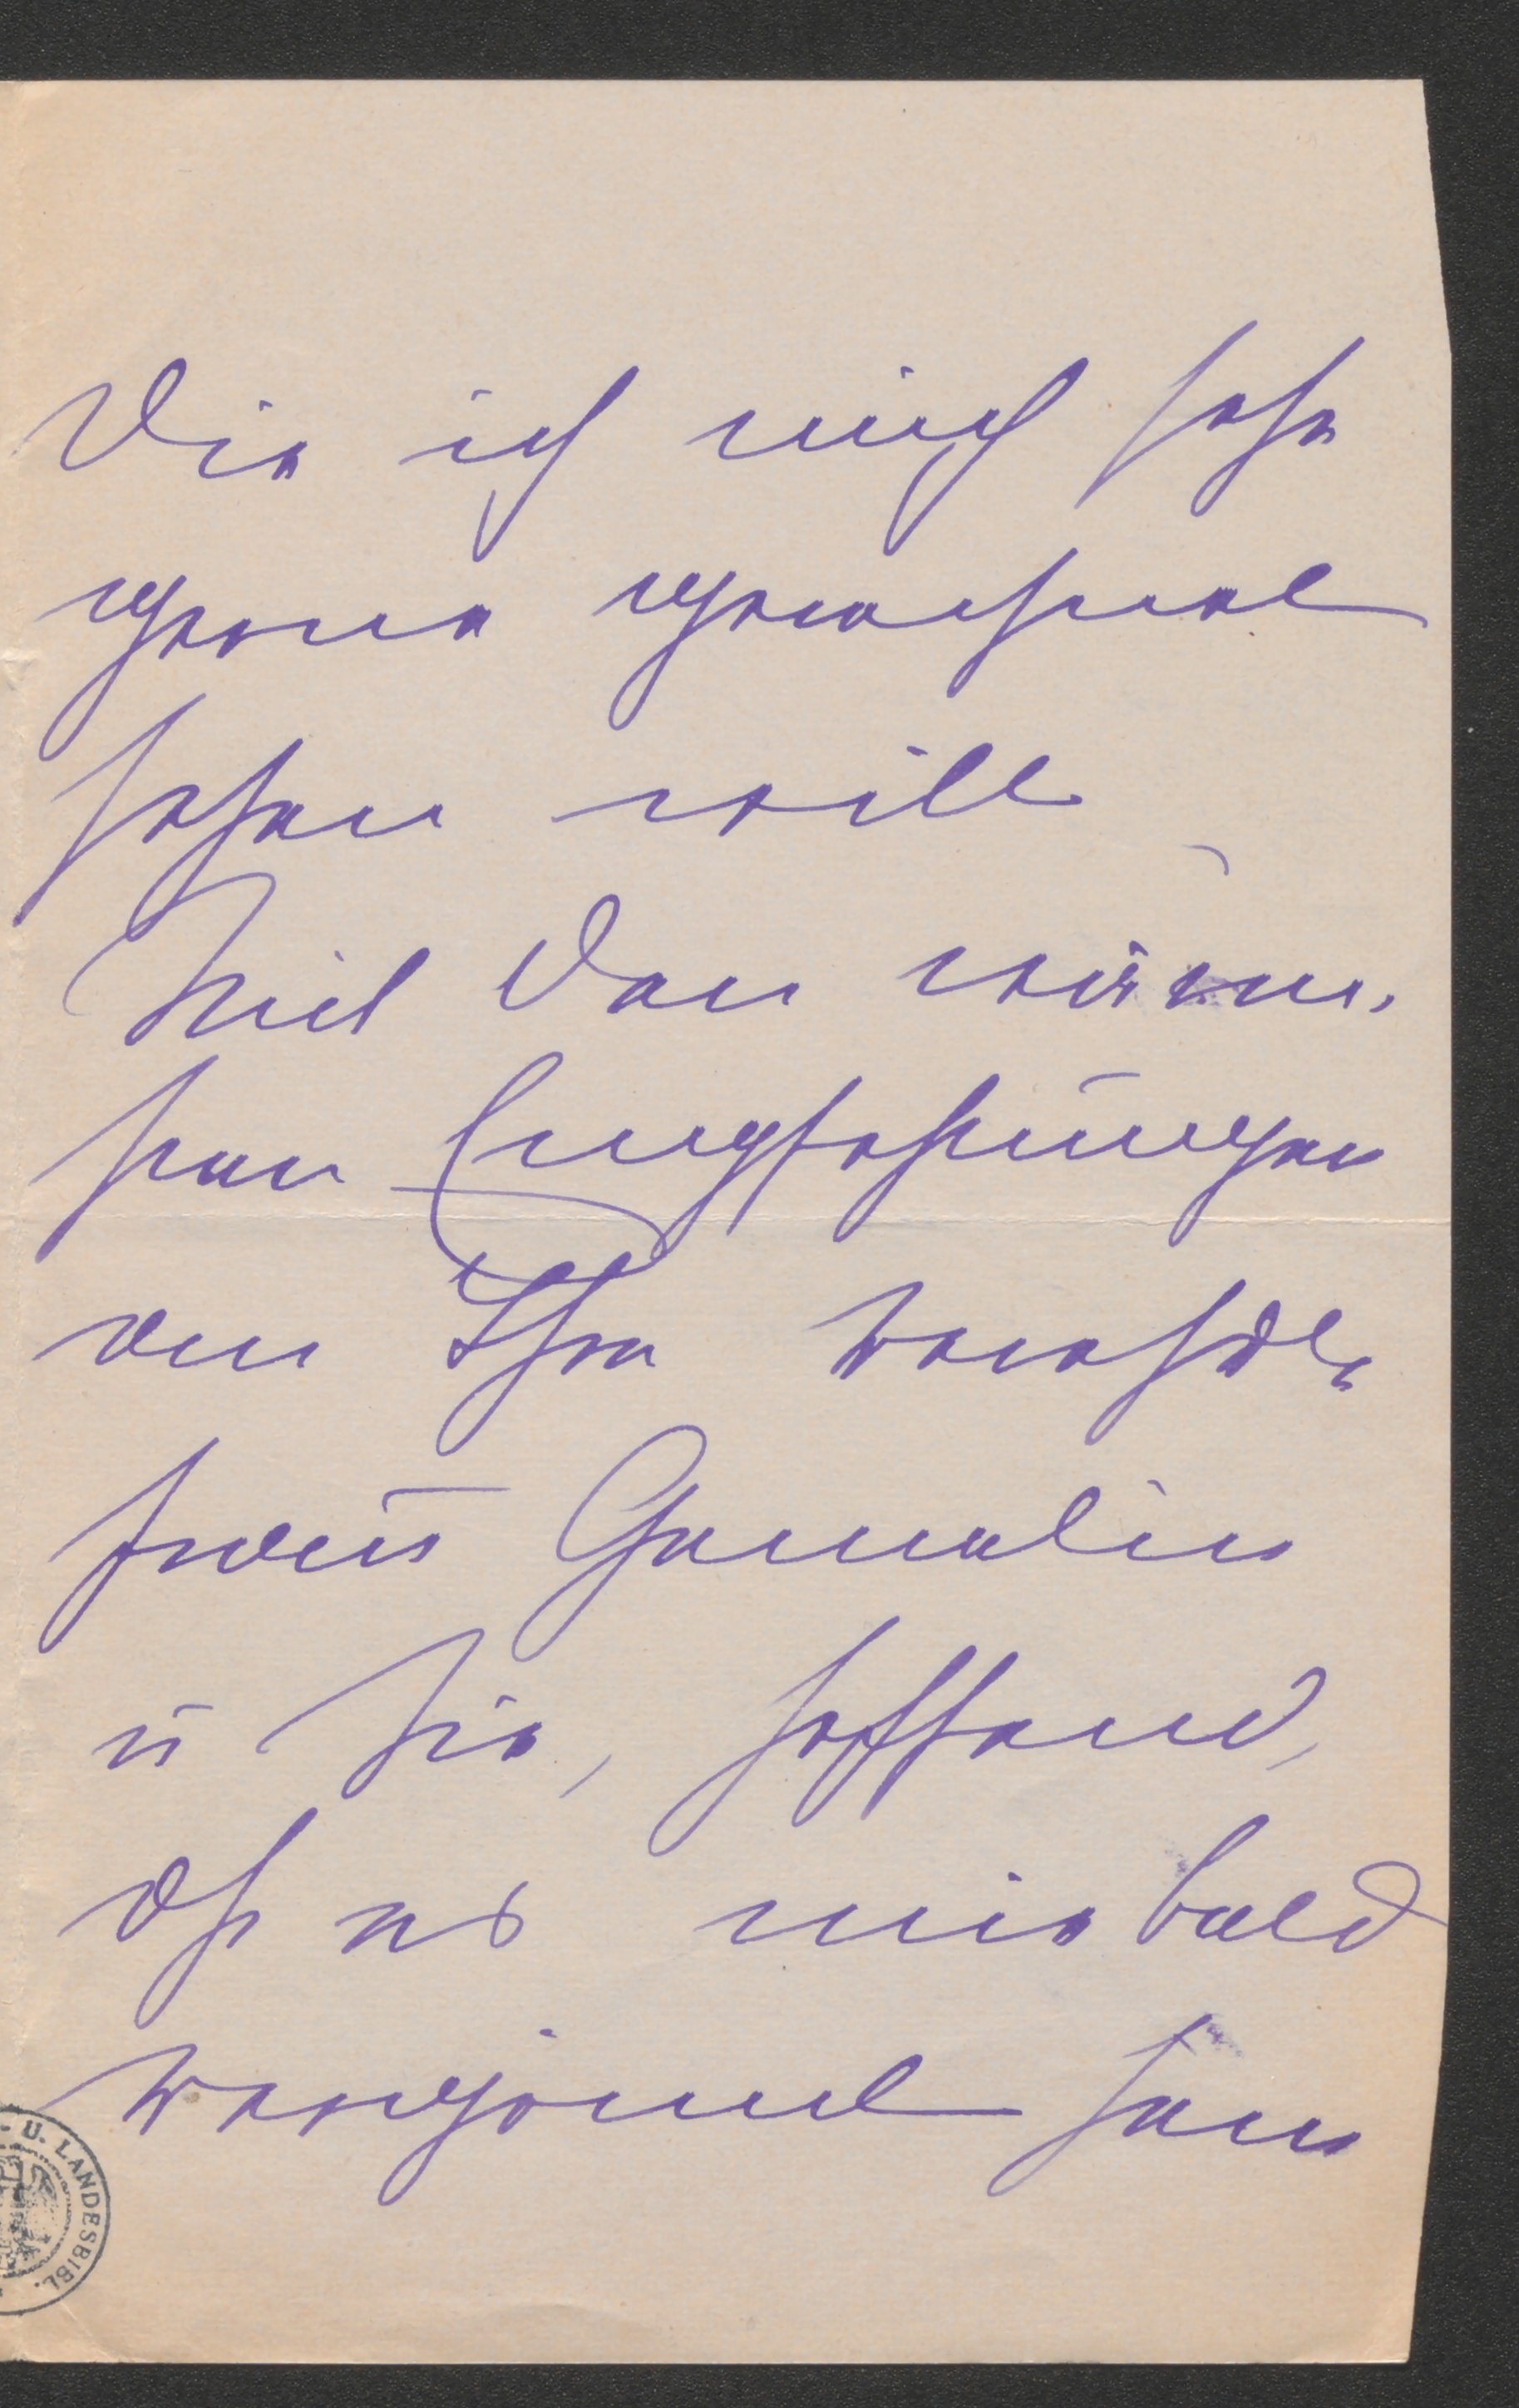 die ich mich sehr
gerne gewöhnt
sehen will
Mit den wärm-
sten Empfehlungen
an Ihre verehrte
Frau Gemalin
u Sie, hoffend,
dß es mir bald
vergönnt sein
U. LANDESBIBL.